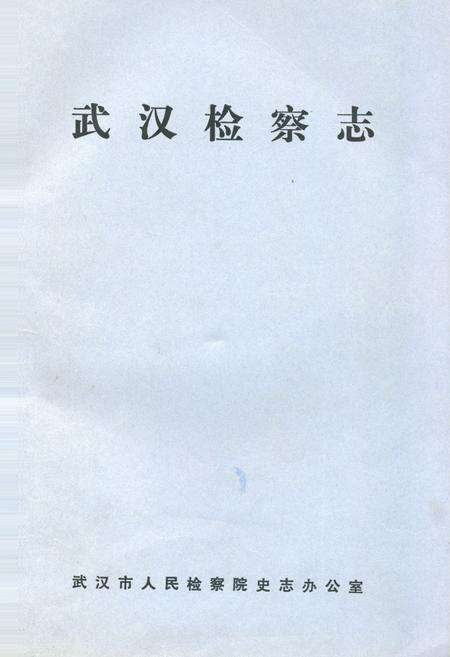 武汉检察志
武汉市人民检察院史志办公室